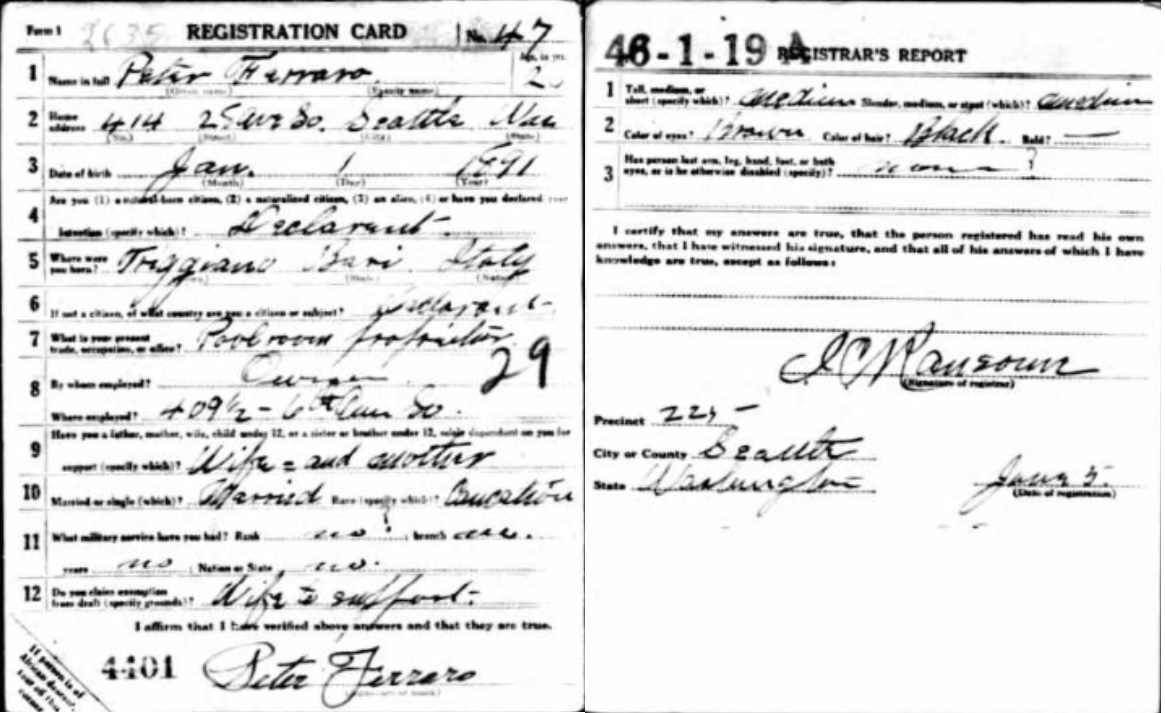 Form 1 2635 REGISTRATION CARD No. 47
1 Name in full Peter Ferraro Age, in yrs.
(Given name) (Family name)
2 Home address 414 25 Ave So. Seattle
(No.) (Street) (City) (State)
3 Date of birth Jan. 1 1891
(Month) (Day) (Year)
4 Are you (1) a natural-born citizen, (2) a naturalized citizen, (3) an alien, (4) or have you declared your
intention (specify which)? Declarant
5 Where were you born? Triggiano Bari Italy
(Town) (State) (Nation)
6 If not a citizen, of what country are you a citizen or subject? Declarant
7 What is your present trade, occupation, or office? Poolroom proprietor
29
8 By whom employed? Owner
Where employed? 409½ - 6th Ave So.
9 Have you a father, mother, wife, child under 12, or a sister or brother under 12, solely dependent on you for
support (specify which)? Wife = and mother
10 Married or single (which)? Married Race (specify which)? Caucation
11 What military service have you had? Rank no ; branch
years no ; Nation or State no.
12 Do you claim exemption from draft (specify grounds)? Wife to support
I affirm that I have verified above answers and that they are true.
4401 Peter Ferraro
(Signature or mark)
If person is of African descent, tear off this corner
46-1-19 A REGISTRAR'S REPORT
1 Tall, medium, or short (specify which)? medium Slender, medium, or stout (which)? medium
2 Color of eyes? Brown Color of hair? Black Bald? —
3 Has person lost arm, leg, hand, foot, or both eyes, or is he otherwise disabled (specify)? none
I certify that my answers are true, that the person registered has read his own
answers, that I have witnessed his signature, and that all of his answers of which I have
knowledge are true, except as follows:
(Signature of registrar)
Precinct 225
City or County Seattle
State Washington June 5
(Date of registration)